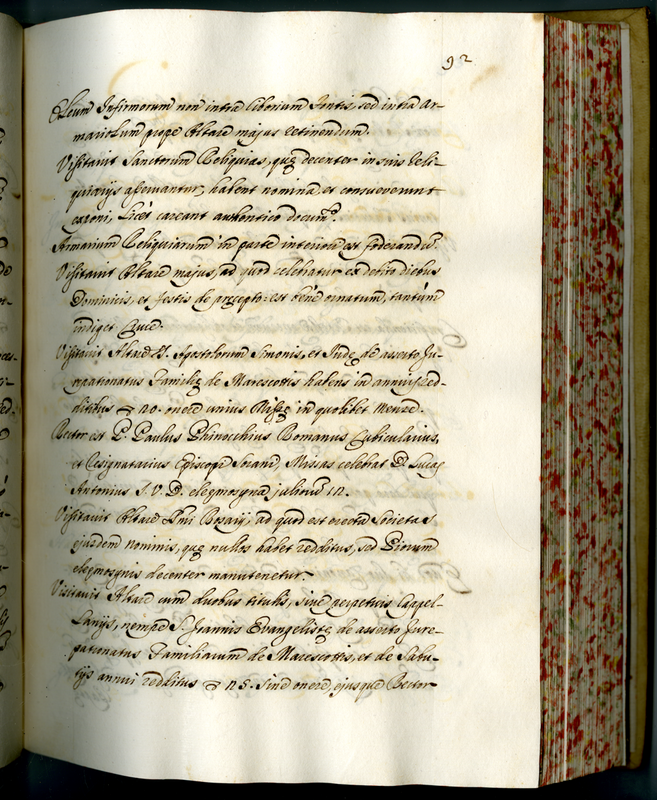 92
Oleum Infirmorum non intra Ciborium Fontis, sed intra Ar-
mariolum prope Altare majus retinendum.
Visitavit Sanctorum Reliquias, quę decenter in suis Reli-
quiarijs asservantur, habent nomina, et consueverunt
exponi, Licet careant authentico docum.to
Armarium Reliquiarum in parte interiori est foderandũ.
Visitavit Altare majus, ad quod celebratur ex debito diebus
Dominicis, et festis de pręcepto: est bene ornatum, tantum
indiget Cruce.
Visitavit Altare SS. Apostolorum Simonis, et Judę de asserto Ju-
repatronatus Familię de Marescottis habens in annuis red-
ditibus 20. onere unius Missę in quolibet mense.
Rector est D. Paulus Romanus Cubicularius,
et Episcopi Missas celebrat D. Lucas
Antonius elęmosyna 12.
Visitavit Altare SSmi Rosarij, ad quod est erecta Societas
ejusdem nominis, quę nullos habet redditus, sed Piorum
elęmosynis decenter manutenetur.
Visitavit Altare cum duobus titulis, sive perpetuis Cappel-
lanijs, nempe S. Joannis Evangelistę de asserto Jure-
patronatus Familiarum de Marescottis, et de Salu-
tijs annui redditus 25. sine onere, ejusque Rector